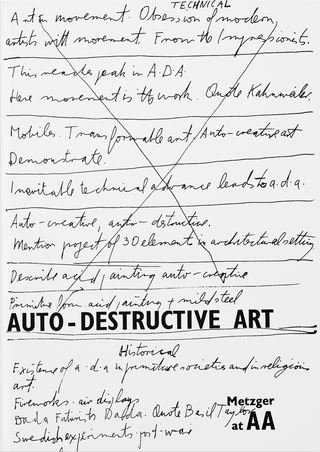 TECHNICAL
Art in movement. Obsession of modern
artists with movement. From the Impressionists.
This reaches peak in A.D.A.
Here movement is the work. Quote Kahnweiler.
Mobiles. Transformable art, Auto-creative art
Demonstrate.
Inevitable technical advance leads to a.d.a.
Auto-creative, auto-destructive.
Mention project of 30 element in architectural setting
Describe acid painting auto-creative
Primitive form acid painting + mild steel
AUTO-DESTRUCTIVE ART
Historical
Existence of a-d-a in primitive societies and in religious
art.
Fireworks. air displays
Dada Futurists Quote Basil Taylor
Swedish experiments post-war
Metzger
at AA